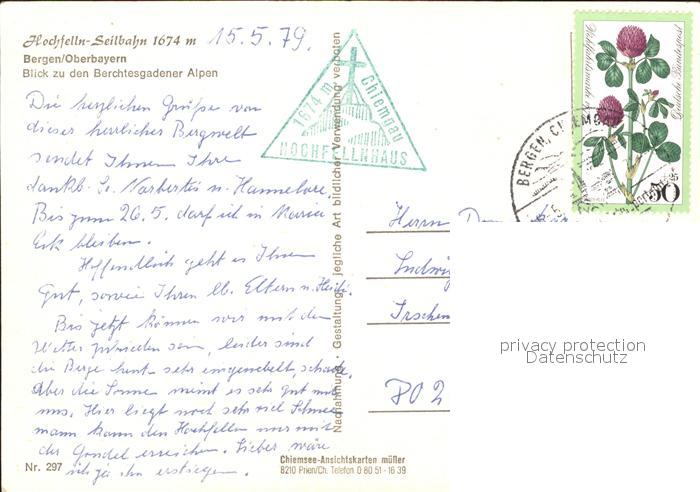 Hochfelln-Seilbahn 1674 m 15.5.79.
Bergen/Oberbayern
Blick zu den Berchtesgadener Alpen
Die herzlichen Grüße von
dieser herrlicher Bergwelt
sendet Ihnen Ihre
dankb. Sr. Norberta u. Hannelore.
Bis zum 26.5. darf ich in Maria
Eck bleiben.
Hoffentlich geht es Ihnen
gut, sowie Ihren lb. Eltern u. Heidi.
Bis jetzt können wir mit dem
Wetter zufrieden sein, leider sind
die Berge heute sehr eingenebelt, schade.
Aber die Sonne meint es sehr gut mit
uns. Hier liegt noch sehr viel Schnee
mann kann den Hochfelln nur mit
der Gondel erreichen. Lieber wäre
ich ja ihn erstiegen.
Nr. 297
1674 m Chiemgau
HOCHFELLNHAUS
Nachahmung · Gestaltung · jegliche Art bildlicher Verwendung verboten
Chiemsee-Ansichtskarten müller
8210 Prien/Ch. Telefon 0 80 51 - 16 39
Deutsche Bundespost
50
BERGEN, CHIEMGAU
Herrn
Ludwig
Irschen
802
privacy protection
Datenschutz